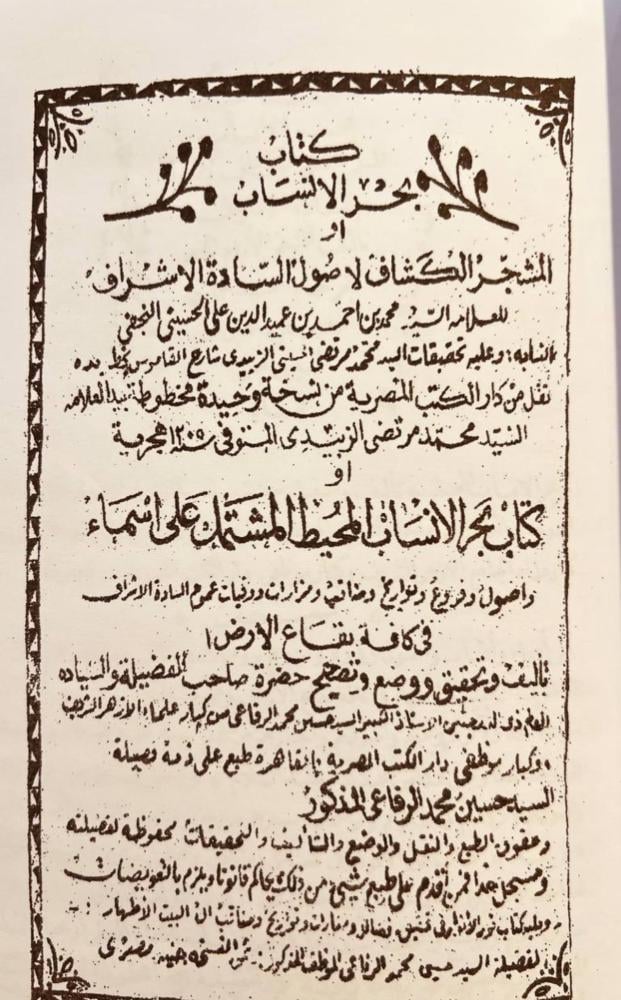 كتاب
بحر الانساب
او
المشجر الكشاف لاصول السادة الاشراف
للعلامه السيد محمد بن احمد بن عميد الدين على الحسينى النجفى
النسابه: وعليه تحقيقات السيد محمد مرتضى الحسينى الزبيدى شارح القاموس بخط يده
نقل من دار الكتب المصرية من نسخة وحيدة مخطوطة بيد العلامه
السيد محمد مرتضى الزبيدى المتوفى سنة ١٢٠٥ هجرية
او
كتاب بحر الانساب المحيط المشتمل على اسماء
واصول وفروع وتواريخ ومناقب ومزارات ووفيات عموم السادة الاشراف
فى كافة بقاع الارض
تأليف وتحقيق ووضع وتصحيح حضرة صاحب الفضيلة والسياده
العالم الاستاذ الكبير السيد حسين محمد الرفاعى من كبار علماء الازهر الشريف
وكبار موظفى دار الكتب المصرية بالقاهرة طبع على ذمة فضيلة
السيد حسين محمد الرفاعى المذكور
وحقوق الطبع والنقل والوضع والتأليف والتحقيقات محفوظة لفضيلته
ومسجل فمن اقدم على طبع شيئ من ذلك يحاكم قانونا ويلزم بالتعويضات
ويليه كتاب نور الأنوار فى فضائل وتواريخ ومناقب آل البيت الأطهار
لفضيلة السيد حسين محمد الرفاعى الموظف المذكور: ثمن النسخه جنيه مصرى